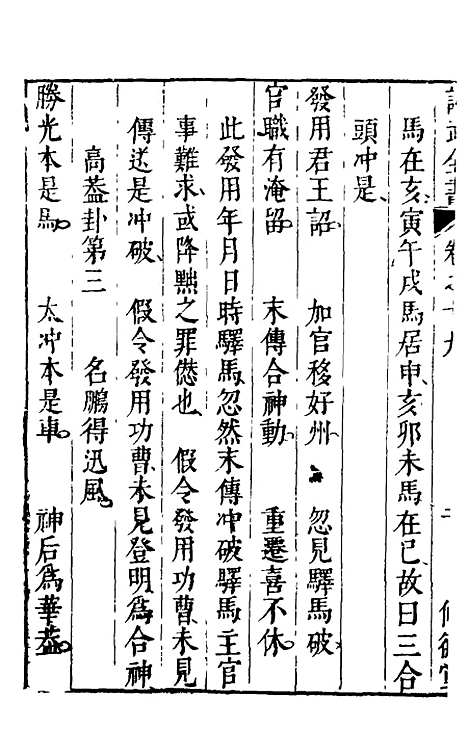 馬在亥寅午戌馬居申亥卯未馬在巳故曰三合
頭冲是
發用君王詔　加官移好州　忽見驛馬破
官職有淹留　末傳合神動　重遷喜不休
此發用年月日時驛馬忽然末傳冲破驛馬主官
事難求或降黜之罪愆也　假令發用功曹未見
傳送是冲破　假令發用功曹未見登明爲合神
高葢卦第三　名鵬得迅風
勝光本是馬　太冲本是車　神后爲華葢